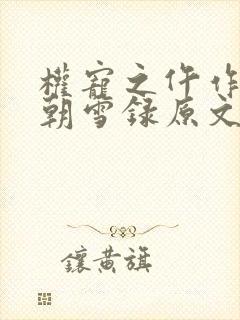 權寵之仵作
朝雪録原文
鑲黄旗